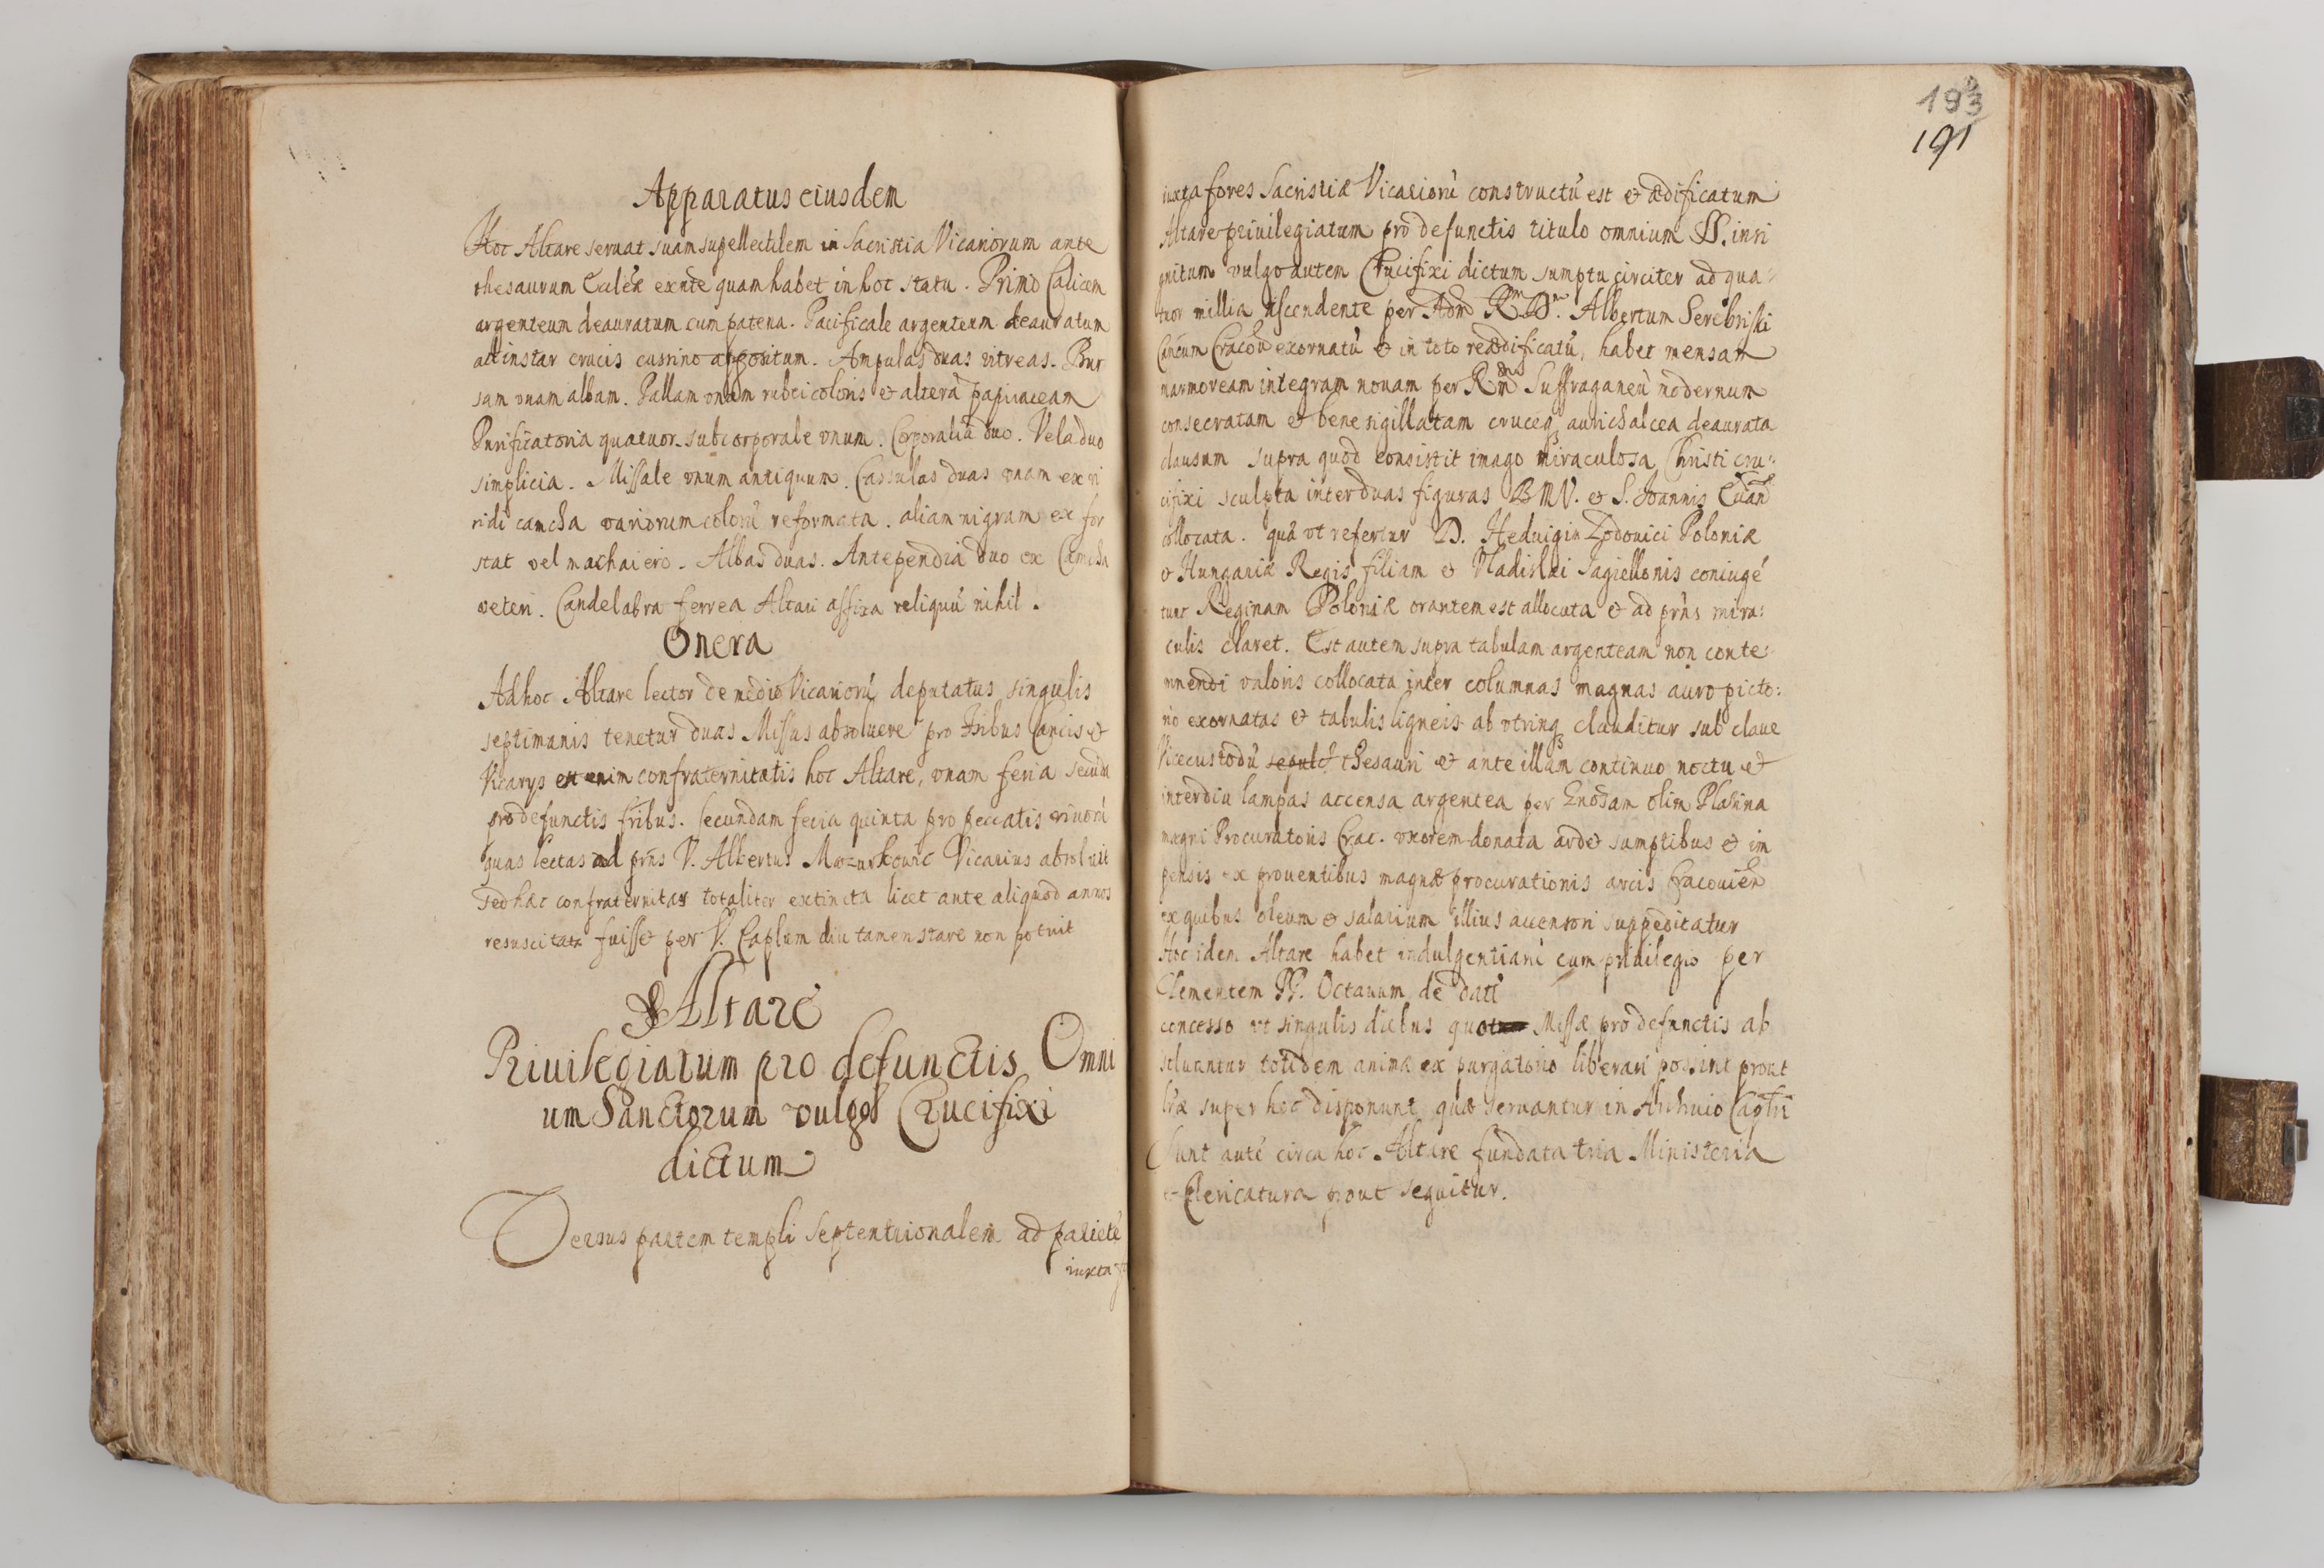 Apparatus eiusdem
Hoc Altare seruat suam supellectilem in Sacristia Vicariorum ante
thesaurum Ecclẽa exñte quam habet in hoc statu. Primo Calicem
argenteum deauratum cum patena. Pacificale argenteum deauratum
ad instar crucis cussino appositum. Ampulas duas vitreas. Bur
sam vnam albam. Pallam vnam rubei coloris et alterã papiraceam
Purificatoria quatuor. subcorporale vnum. Corporalia duo. Vela duo
simplicia. Missale vnum antiquum. Cassulas duas vnam ex vi
ridi camcha variorum colorũ reformata. aliam nigram ex for
stat vel machaiero. Albas duas. Antependia duo ex Camcha
veteri. Candelabra ferrea Altari affixa reliquũ nihil.
Onera
Ad hoc Altare lector de medio Vicariorũ deputatus singulis
septimanis tenetur duas Missas absoluere pro Fribus Cancis et
Vicarys est enim confraternitatis hoc Altare, vnam feria secunda
pro defunctis fribus. secundam feria quinta pro peccatis viuorũ
quas lectas ad prñs V. Albertus Mazurkouic Vicarius absoluit
sed hac confraternitas totaliter extincta licet ante aliquod annos
resuscitata fuisset per V. Caplum diu tamen stare non potuit
Altare
Priuilegiatum pro defunctis Omni
um Sanctorum vulgo Crucifixi
dictum
Versus partem templi septentrionalem ad parietẽ
iuxta
193
191
iuxta fores Sacristiæ Vicariorũ constructũ est et ædificatum
Altare priuilegiatum pro defunctis titulo omnium SS. insi
gnitum vulgo autem Crucifixi dictum sumptu circiter ad qua:
tuor millia ascendente per Adm Rm Dm. Albertum Serebriski
Cancum Cracoũ exornatũ et in toto reædificatũ, habet mensam
marmoream integram nouam per Rm dm Suffraganeũ modernum
consecratam et bene sigillatam cruceq aurichalcea deaurata
clausum supra quod consistit imago miraculosa Christi cru:
cifixi sculpta inter duas figuras BMV. et S. Joannis Euan
collocata. quã vt refertur D. Heduigim Lodouici Poloniæ
et Hungariæ Regis filiam et Vladislai Jagiellonis coniugẽ
tunc Reginam Poloniæ orantem est allocuta et ad prñs mira:
culis claret. Est autem supra tabulam argenteam non conte:
mnendi valoris collocata inter columnas magnas auro picto:
rio exornatas et tabulis ligneis ab vtrinq clauditur sub claue
Vicecustodũ thesauri et ante illam continuo noctu et
interdiu lampas accensa argentea per Gnosam olim Platina
magni Procuratoris Crac. vxorem donata ardet sumptibus et im
pensis ex prouentibus magnæ procurationis arcis Cracouien
ex quibus oleum et salarium illius accensori suppeditatur
Hoc idem Altare habet indulgentiam cum priuilegio per
Clementem PP. Octauum de datũ
concesso vt singulis diebus quot Missæ pro defunctis ab
soluuntur totidem animæ ex purgatorio liberari possint prout
lræ super hoc disponunt quæ seruantur in Archiuio Caplri
Sunt autẽ circa hoc Altare fundata tria Ministeria
et Clericatura prout sequitur.